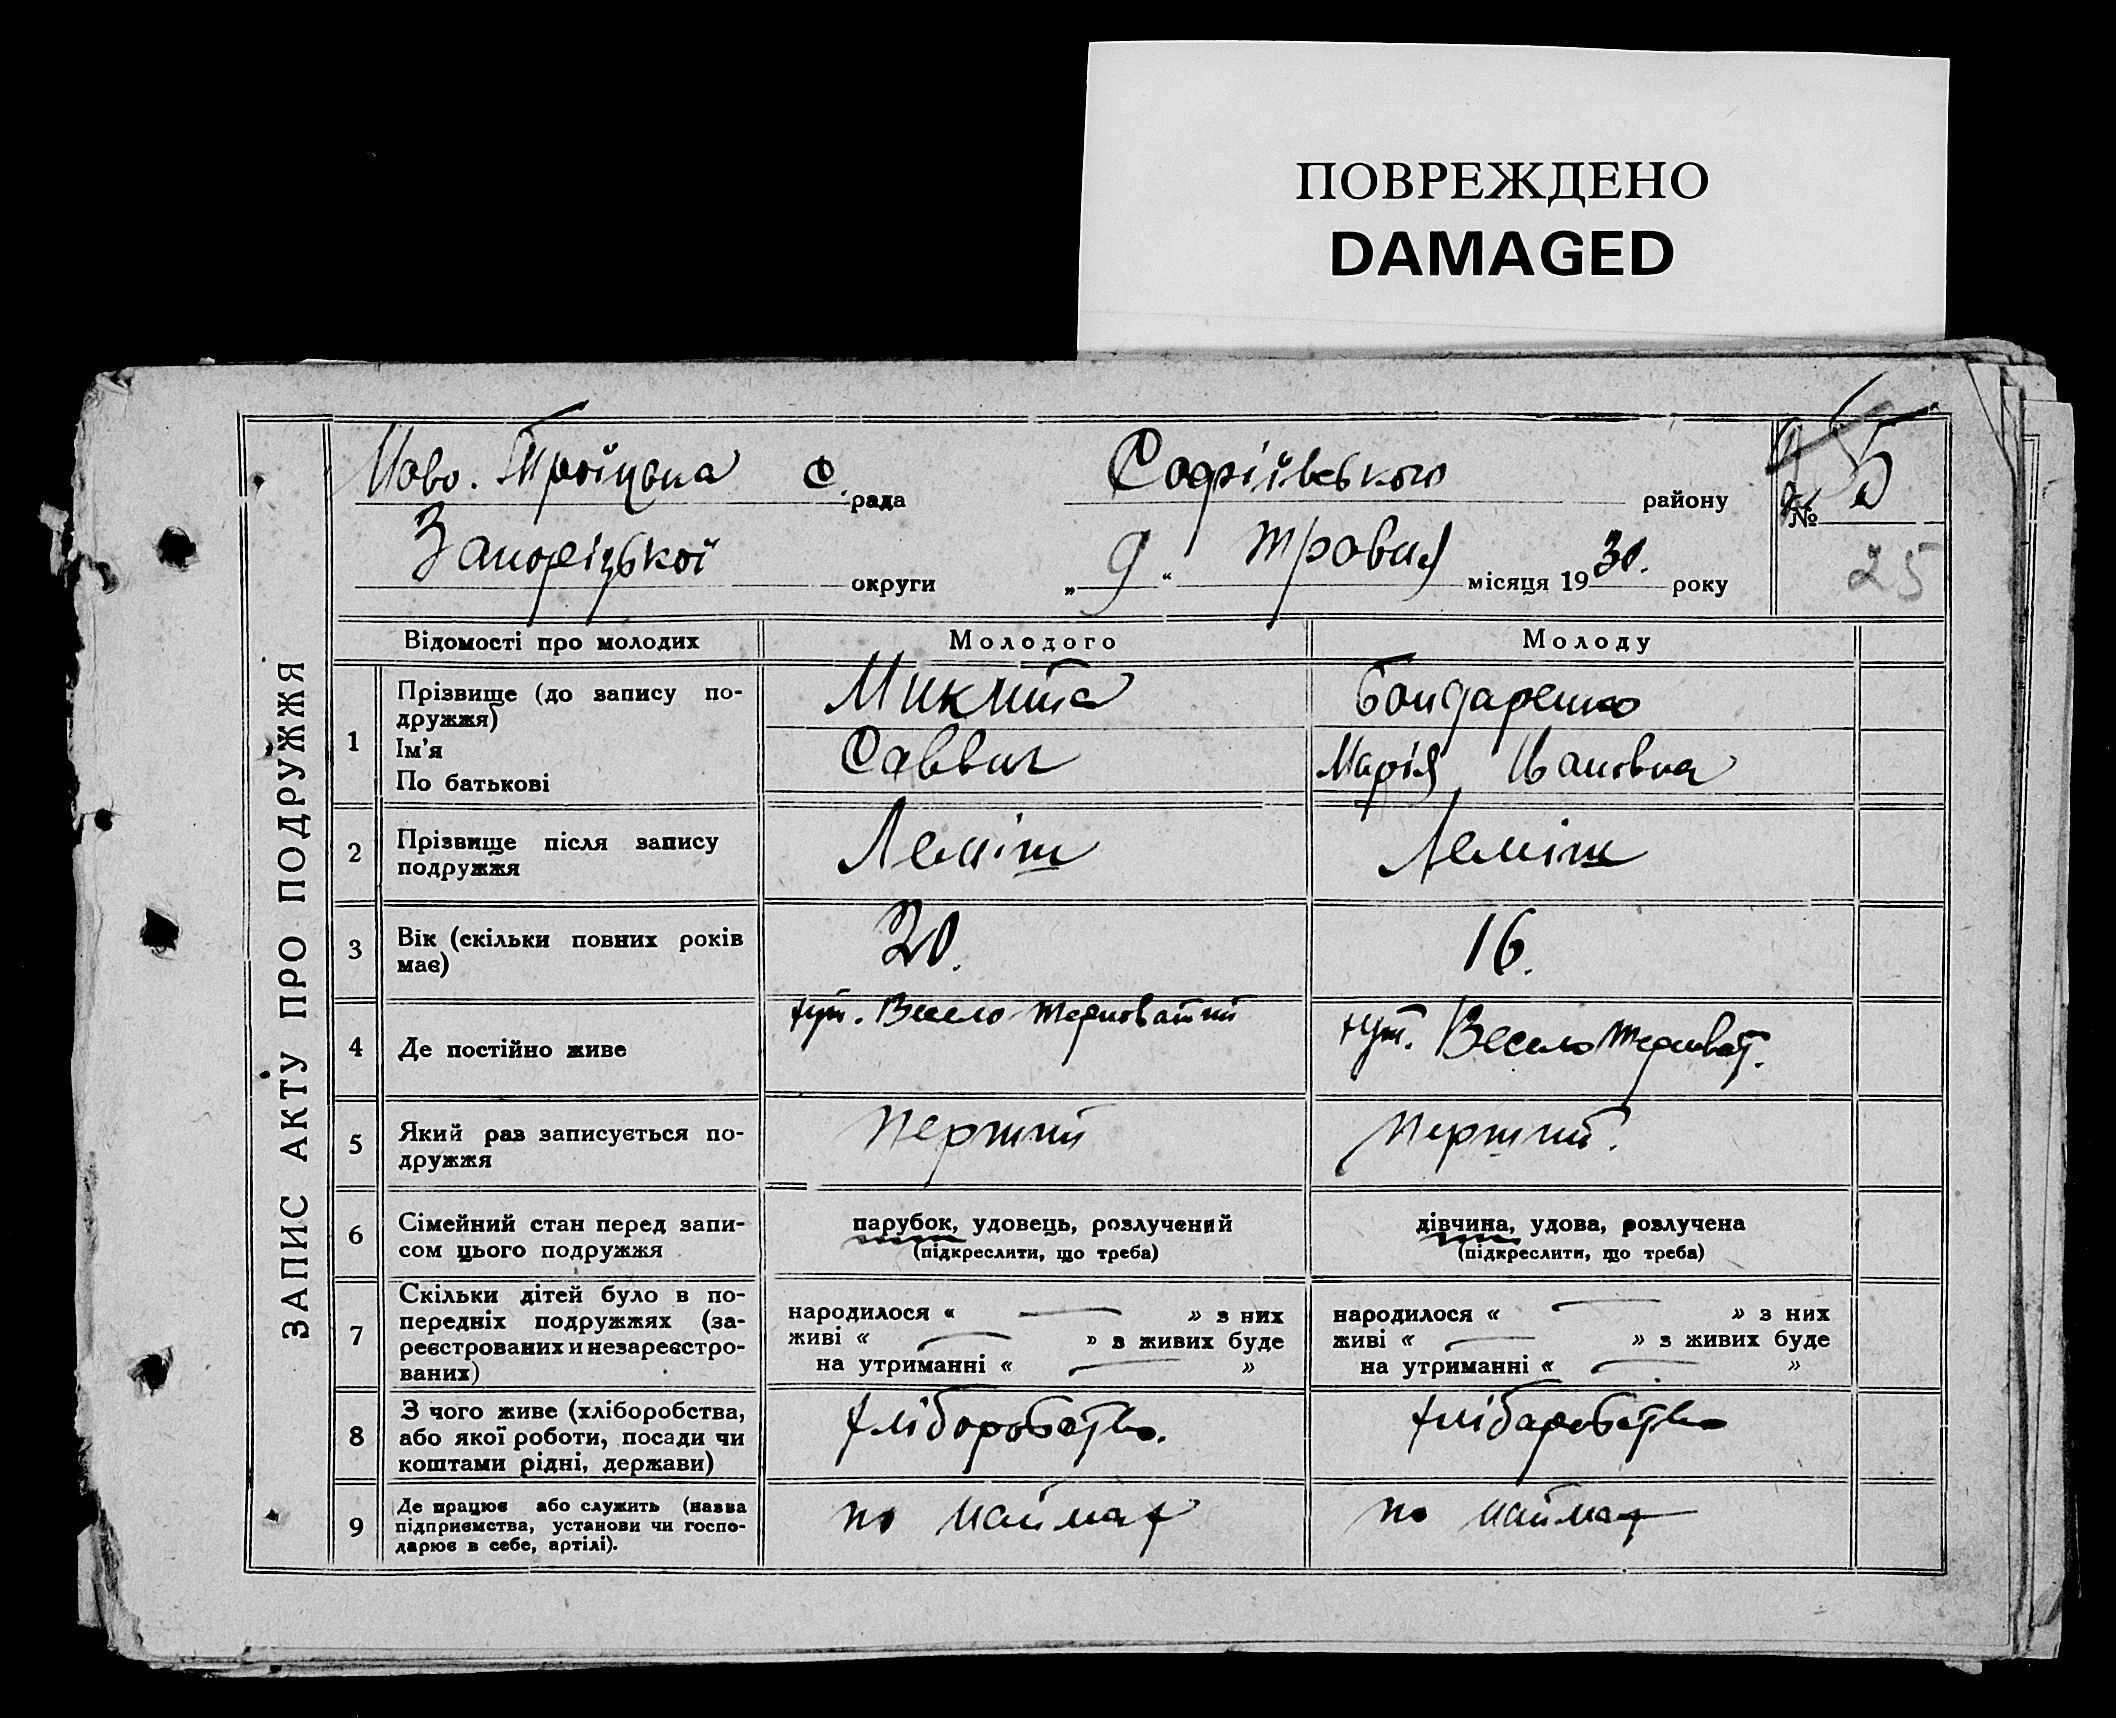 ПОВРЕЖДЕНО
DAMAGED
ЗАПИС АКТУ ПРО ПОДРУЖЖЯ
Ново. Троїцька С. рада
Софіївського району
№ 5
Запоріцької округи
„ 9 “ травня місяця 19 30. року
25
Відомості про молодих
Молодого
Молоду
1
Прізвище (до запису по-
дружжя)
Ім'я
По батькові
Микита
Саввич
Бондаренко
Марія Івановна
2
Прізвище після запису
подружжя
Леміш
Леміш
3
Вік (скільки повних років
має)
20.
16.
4
Де постійно живе
хут. Весело Терноватий
хут. Весело Терноват.
5
Який раз записується по-
дружжя
перший
перший.
6
Сімейний стан перед запи-
сом цього подружжя
парубок, удовець, розлучений
(підкреслити, що треба)
дівчина, удова, розлучена
(підкреслити, що треба)
7
Скільки дітей було в по-
передніх подружжях (за-
реєстрованих и незареєстро-
ваних)
народилося « — » з них
живі « — » з живих буде
на утриманні « — »
народилося « — » з них
живі « — » з живих буде
на утриманні « — »
8
З чого живе (хліборобства,
або якої роботи, посади чи
коштами рідні, держави)
хліборобство.
хлібаробство
9
Де працює або служить (назва
підприємства, установи чи госпо-
дарює в себе, артілі).
по наймах
по наймах